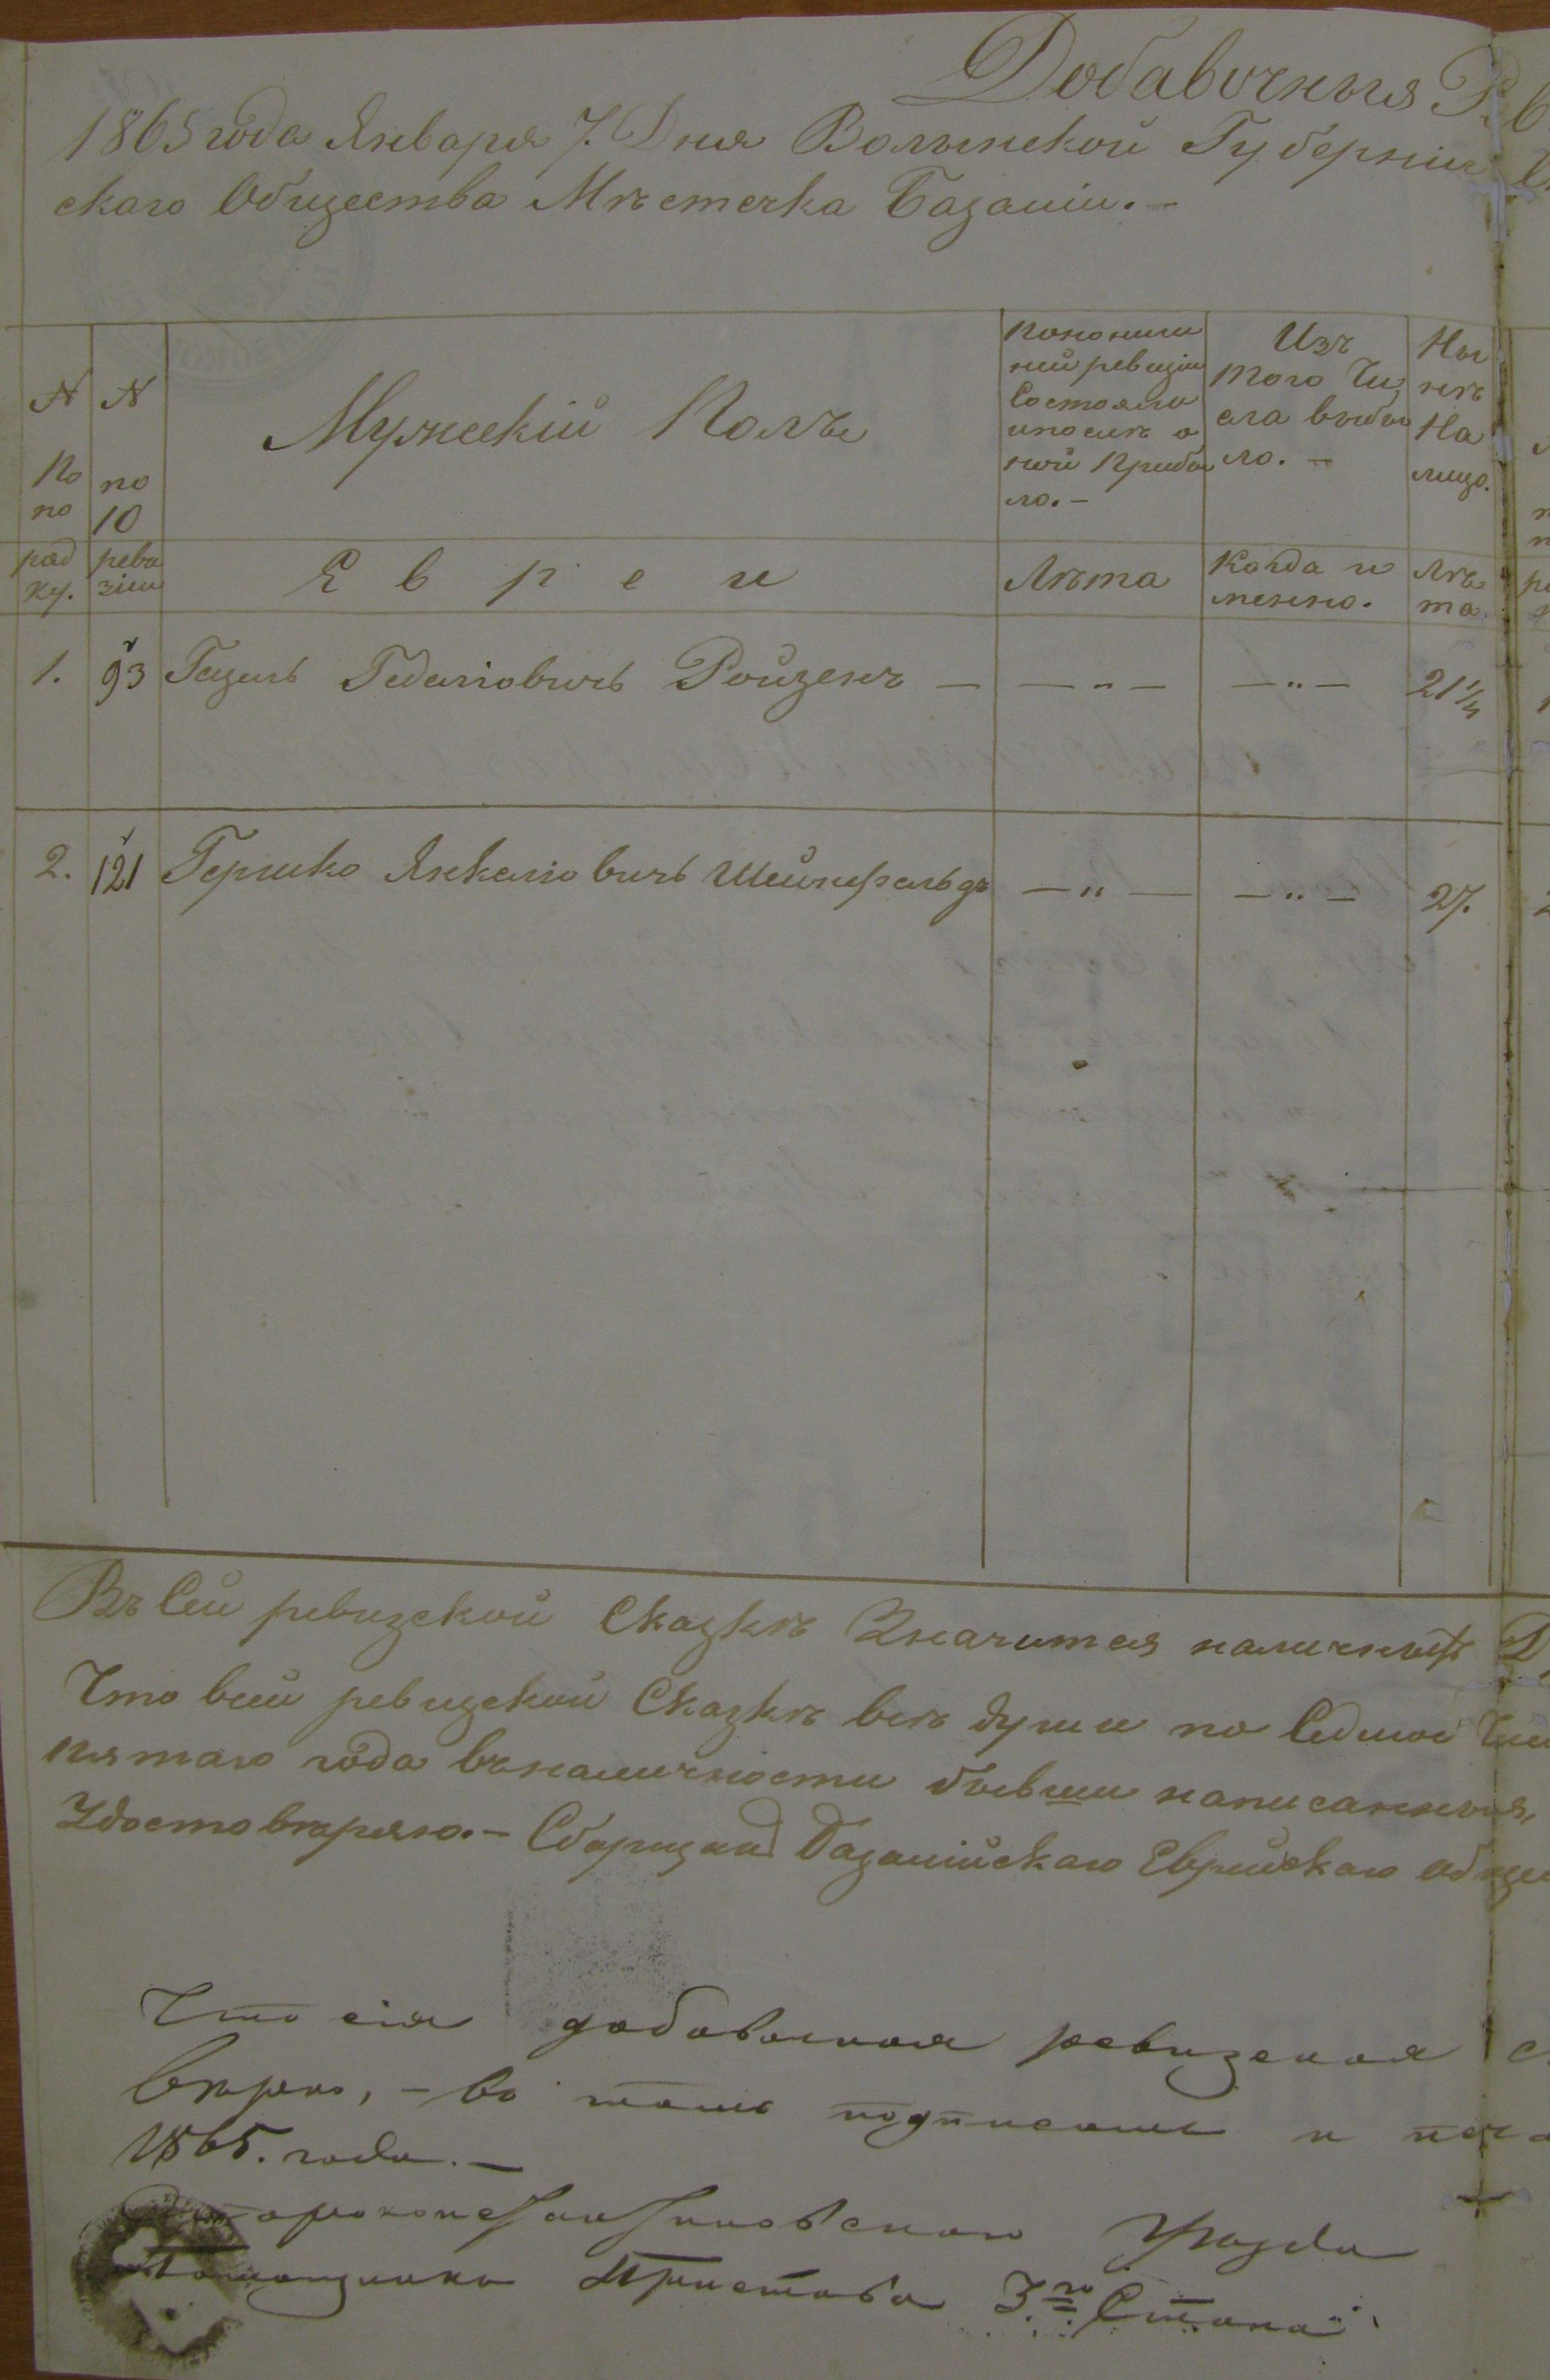 Добавочныя Рев
1865 года Января 7. Дня Волынской Губерніи
скаго Общества Мѣстечка Базаліи. –
№ По по ряд ку.
№ по 10 реви зіи
Мужескій Полъ
По кончи ней ревизіи Состояло и послѣ о ной Прибы ло. –
Изъ того Чи сла выбы ло. –
Ны нѣ На лицо.
Евреи
Лѣта
Когда и менно.
Лѣ та
1. 93 Гецель Гедаліовичь Ройзенъ – – " – – " – 21 1/4
2. 121 Гершко Янкеліовичь Шейнфельдъ – " – – " – 27.
Въ Сей ревизской Сказкѣ Значится наличныхъ Д
Что всей ревизской Сказкѣ всѣ души по Седмое Чи
пятаго года въ наличности бывши написанныя,
Удостовѣряю. – Сборщикъ Базалійскаго Еврейскаго обще
Что сія добавочная ревизская с
вѣрно, – во томъ подписомъ и печа
1865. года. –
Староконстантиновскаго Уѣзда
Помощника Пристава 3.го Стана